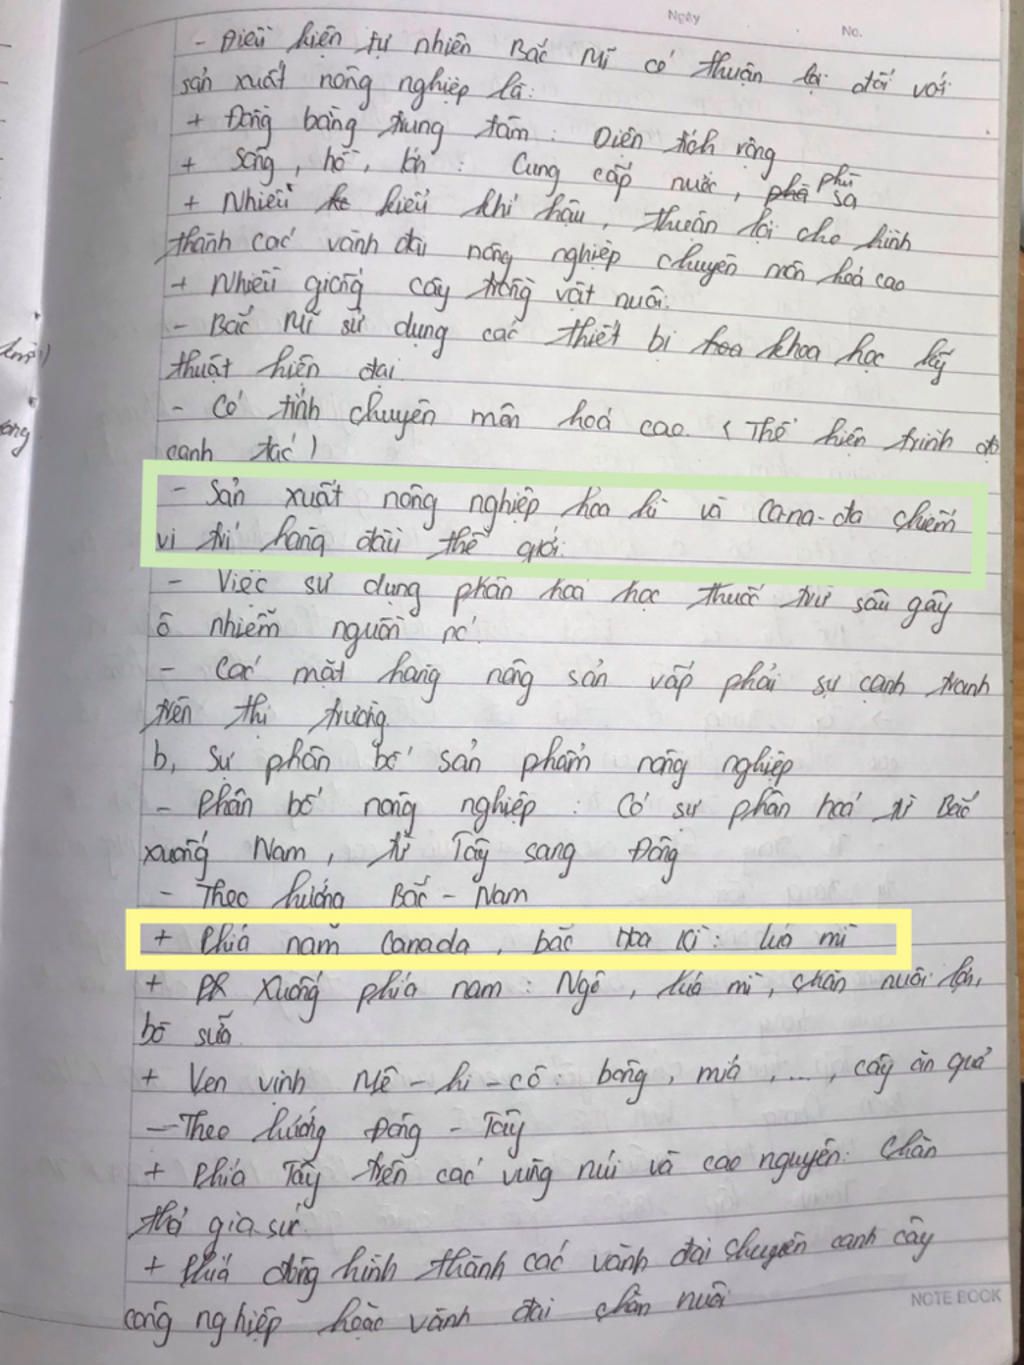 Ngày
No.
- Điều kiện tự nhiên Bắc Mĩ có thuận lợi đối với
sản xuất nông nghiệp là:
+ Đồng bằng trung tâm: Diện tích rộng
+ Sông, hồ, lớn: Cung cấp nước, phù sa
+ Nhiều kiểu khí hậu, thuận lợi cho hình
thành các vành đai nông nghiệp chuyên môn hoá cao
+ Nhiều giống cây trồng vật nuôi.
- Bắc Mĩ sử dụng các thiết bị khoa học kỹ
thuật hiện đại
- Có tính chuyên môn hoá cao. (Thể hiện trình độ
canh tác)
- Sản xuất nông nghiệp hoa kì và Ca-na-đa chiếm
vị trí hàng đầu thế giới.
- Việc sử dụng phân hoá học thuốc trừ sâu gây
ô nhiễm nguồn nc.
- Các mặt hàng nông sản vấp phải sự cạnh tranh
trên thị trường
b, Sự phân bố sản phẩm nông nghiệp
- Phân bố nông nghiệp: Có sự phân hoá từ Bắc
xuống Nam, từ Tây sang Đông
- Theo hướng Bắc - Nam
+ Phía nam Canada, bắc Hoa Kì: lúa mì
+ Xuống phía nam: Ngô, lúa mì, chăn nuôi lợn,
bò sữa
+ Ven vịnh Mê-hi-cô: bông, mía, ..., cây ăn quả
- Theo hướng Đông - Tây
+ Phía Tây trên các vùng núi và cao nguyên: Chăn
thả gia súc.
+ Phía đông hình thành các vành đai chuyên canh cây
công nghiệp hoặc vành đai chăn nuôi
NOTE BOOK